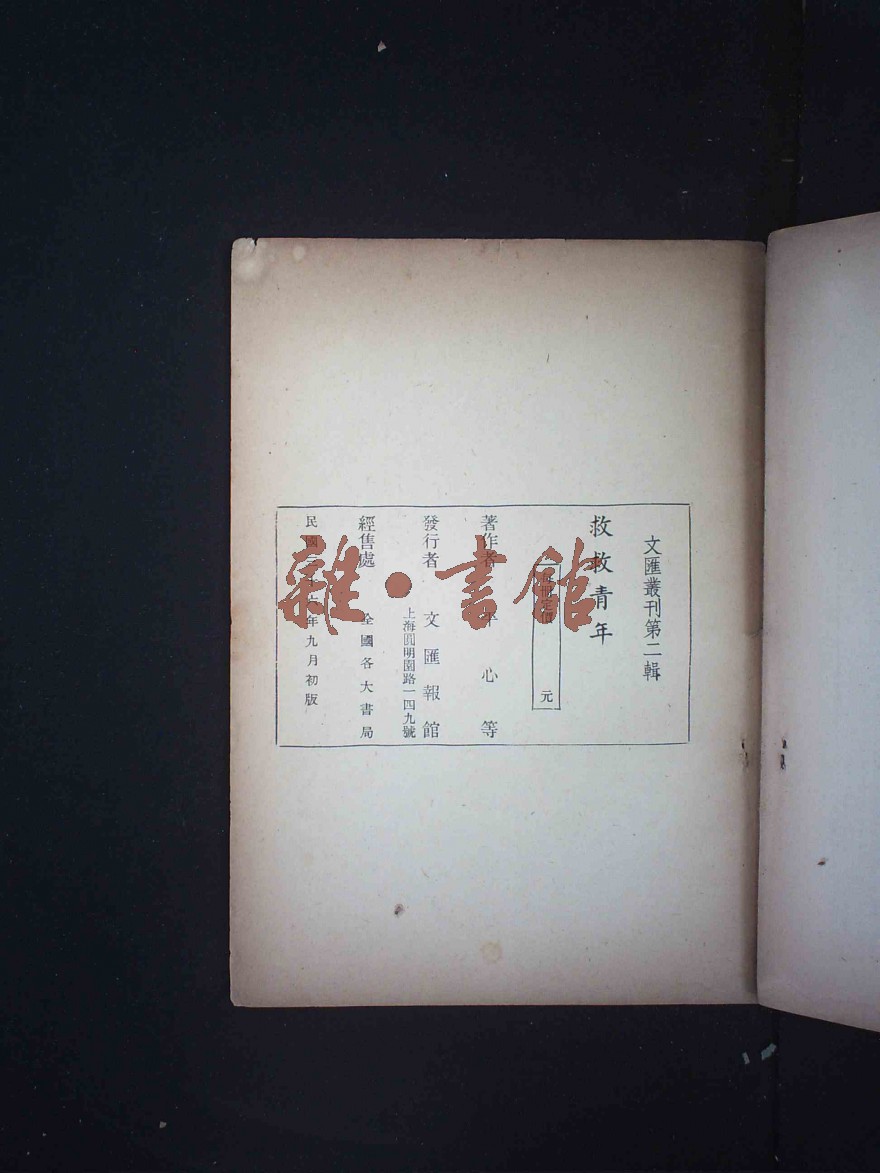 文匯叢刊第二輯
救救青年
每冊定價 元
著作者 心等
發行者 文匯報館
上海圓明園路一四九號
經售處 全國各大書局
民國三十六年九月初版
雜·書館